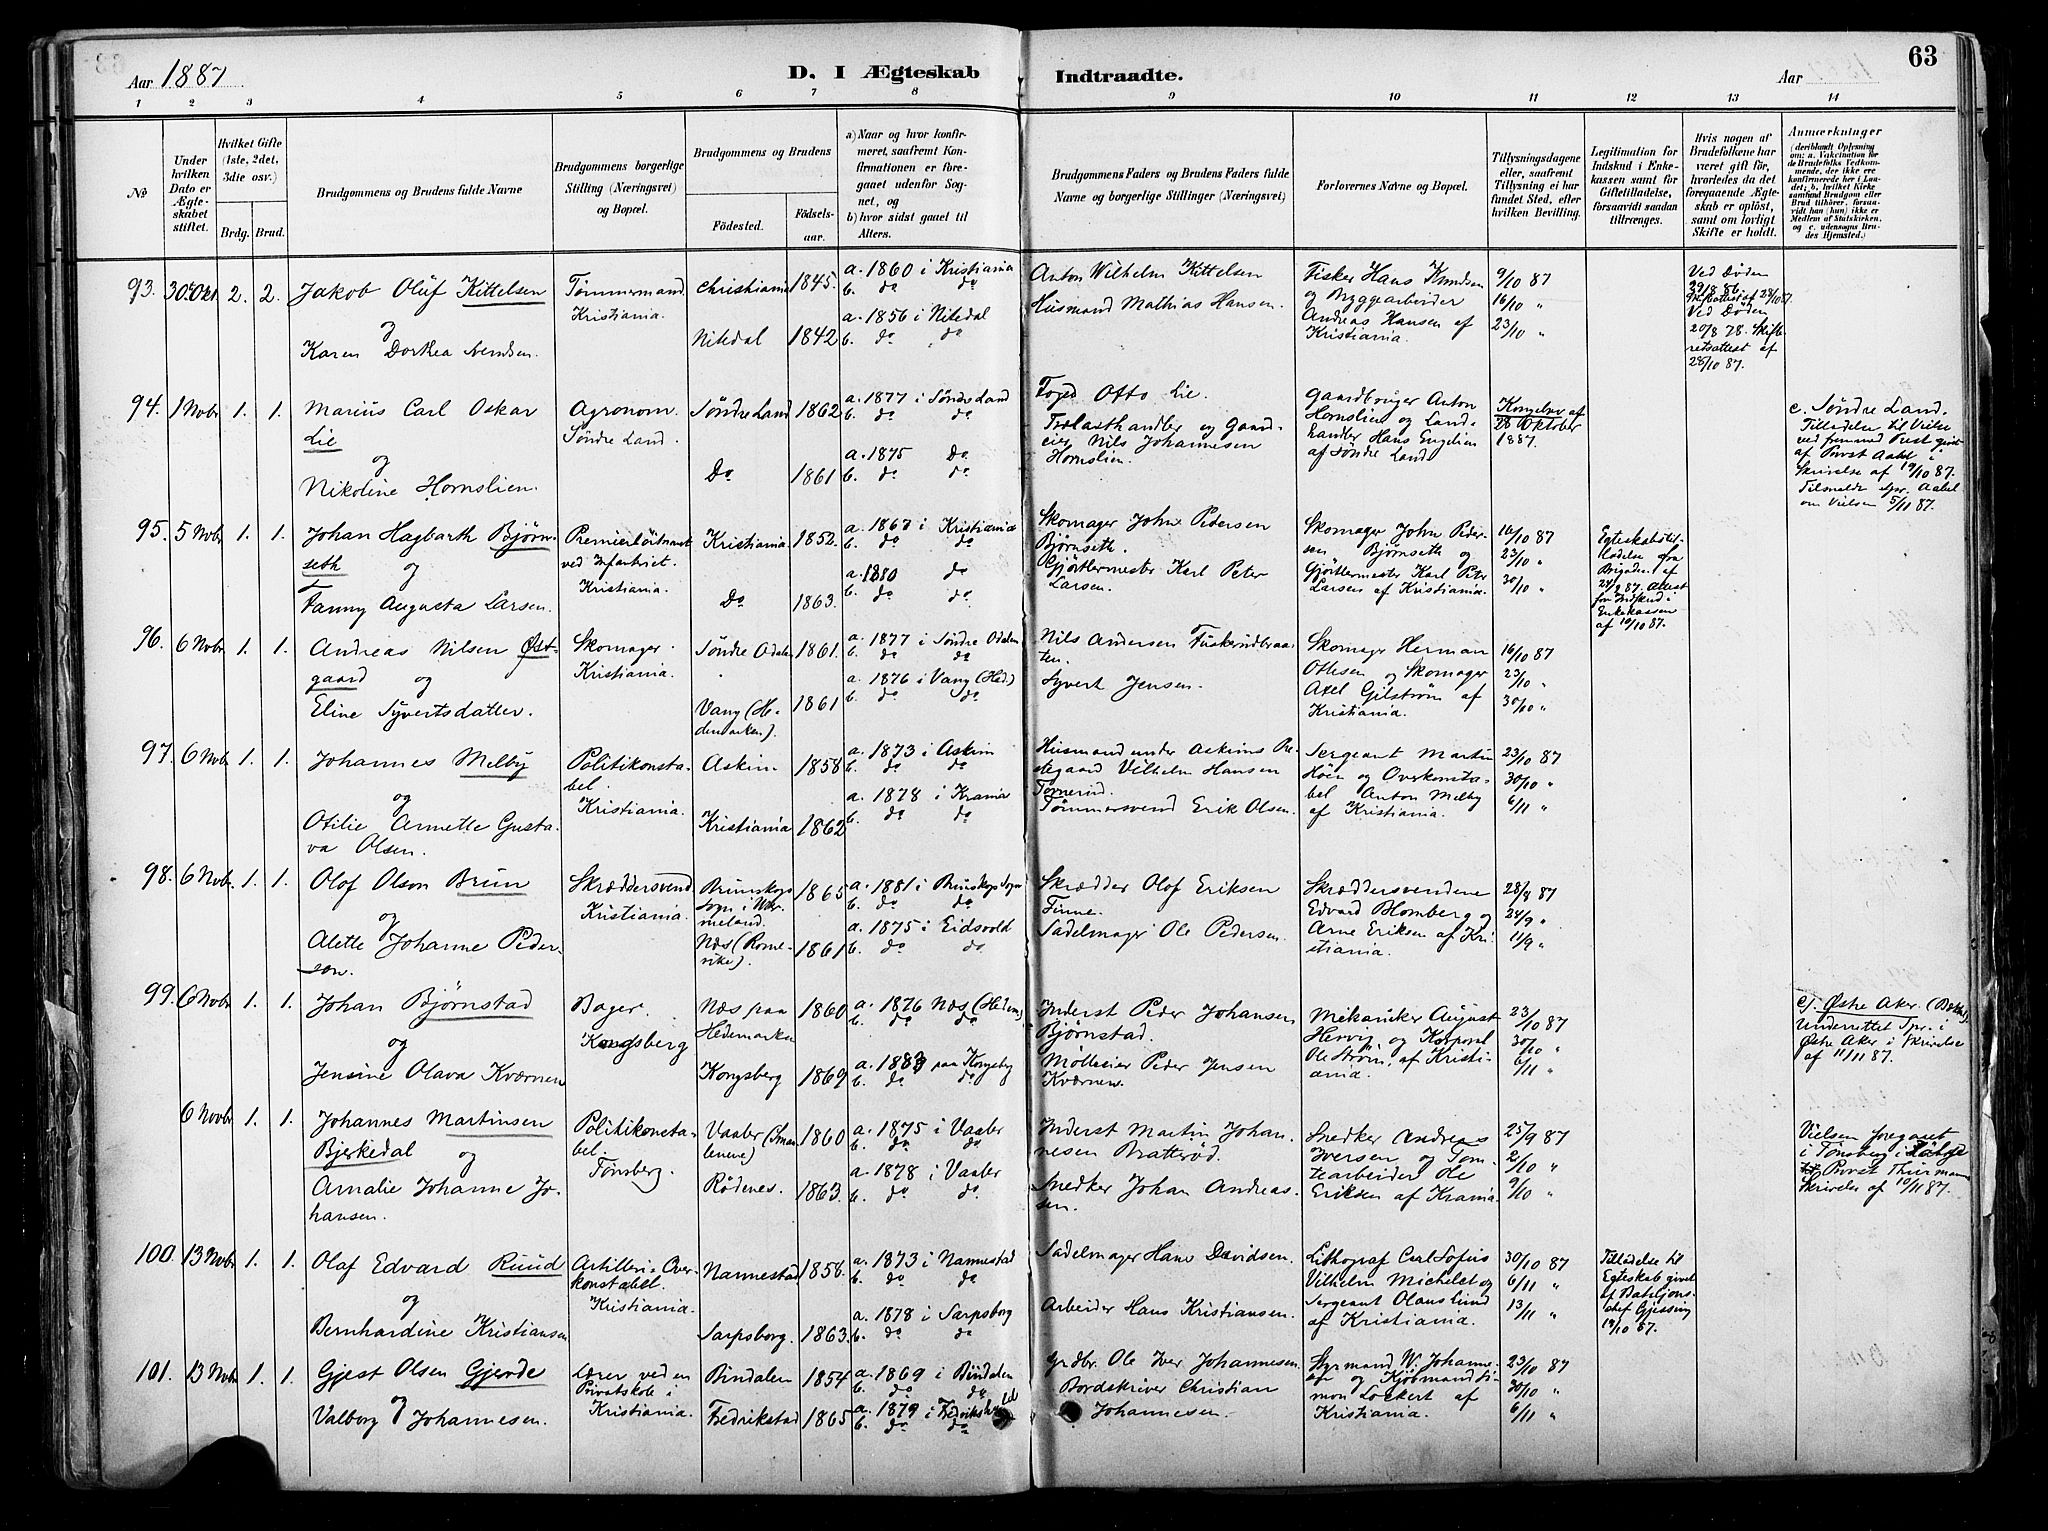 Aar 1887 D. I Ægteskab Indtraadte. Aar 63
1 2 3 4 5 6 7 8 9 10 11 12 13 14
No
Under hvilken Dato er Ægteskabet stiftet.
Hvilket Gifte (1ste, 2det, 3die osv.)
Brdg. Brud.
Brudgommens og Brudens fulde Navne
Brudgommens borgerlige Stilling (Næringsvei) og Bopæl.
Brudgommens og Brudens
Fødested. Fødselsaar.
a) Naar og hvor konfirmeret, saafremt Konfirmationen er foregaaet udenfor Sognet, og
b) hvor sidst gaaet til Alters.
Brudgommens Faders og Brudens Faders fulde Navne og borgerlige Stillinger (Næringsvei)
Forlovernes Navne og Bopæl.
Tillysningsdagene eller, saafremt Tillysning ei har fundet Sted, efter hvilken Bevilling.
Legitimation for Indskud i Enkekassen samt for Giftetilladelse, forsaavidt saadan tiltrænges.
Hvis nogen af Brudefolkene har været gift før, hvorledes da det foregaaende Ægteskab er opløst, samt om lovligt Skifte er holdt.
Anmærkninger
(deriblandt Oplysning om: a. Vakcination for de Brudefolks Vedkommende, der ikke ere konfirmerede her i Landet; b. hvilket Kirkesamfund Brudgom eller Brud tilhører, forsaavidt han (hun) ikke er Medlem af Statskirken, og c. udensogns Brudes Hjemsted.)
93. 30 Okt. 2. 2. Jakob Oluf Kittelsen
og
Karen Dorthea Svendsen.
Tømmermand.
Kristiania.
Christiania 1845.
Nitedal 1842
a. 1860 i Kristiania
b. do do
a. 1856 i Nitedal
b. do do
Anton Wilhelm Kittelsen
Husmand Mathias Hansen.
Fisker Hans Knudsen
og Byggearbeider
Andreas Hansen af
Kristiania.
9/10 87
16/10 "
23/10 "
Ved Døden
29/8 86.
Skifteattest af 28/10 87.
Ved Døden
20/8 78. Skifte-
retsattest af
28/10 87.
94. 1 Novbr 1. 1. Marius Carl Oskar
Lie
og
Nikoline Hornslien.
Agronom.
Søndre Land.
Søndre Land 1862
Do 1861
a. 1877 i Søndre Land
b. do do
a. 1875 Do
b. do do
Foged Otto Lie.
Trælasthandler og Gaard-
eier Nils Johannesen
Hornslien.
Gaardbruger Anton
Hornslien og Land-
handler Hans Engelien
af Søndre Land
Kongebrev af
28 Oktober
1887.
c. Søndre Land.
Tilladelse til Vielse
ved fremmed Prest givet
af Provst Aabel i
Skrivelse af 19/10 87.
Tilmeldt Spr. Aabel
om Vielsen 5/11 87.
95. 5 Novbr 1. 1. Johan Hagbarth Bjørn-
seth og
Fanny Augusta Larsen.
Premierløitnant
ved Infantriet.
Kristiania.
Kristiania. 1852.
Do 1863.
a. 1867 i Kristiania
b. do do
a. 1880 do
b. do do
Skomager John Pedersen
Bjørnseth.
Gjørtlermester Karl Peter
Larsen.
Skomager John Peder-
sen Bjørnseth og
Gjørtlermester Karl Peter
Larsen af Kristiania.
16/10 87
23/10 "
30/10 "
Egteskabstil-
ladelse fra
Brigaden af
24/9 87, Attest
for Indskud i
Enkekassen
af 10/10 87.
96. 6 Novbr 1. 1. Andreas Nilsen Øst-
gaard og
Eline Syvertsdatter.
Skomager.
Kristiania.
Søndre Odalen 1861.
Vang (He-
demarken). 1861
a. 1877 i Søndre Odalen
b. do do
a. 1876 i Vang (Hed.)
b. do do
Nils Andersen Fuskerudbraa-
ten.
Syvert Jensen.
Skomager Herman
Ottesen og Skomager
Axel Gilstrøm af
Kristiania.
16/10 87
23/10 "
30/10 "
97. 6 Novbr 1. 1. Johannes Melby
og
Otilie Annette Gusta-
va Olsen.
Politikonsta-
bel.
Kristiania.
Askim 1858
Kristiania 1862
a. 1873 i Askim
b. do do
a. 1878 i Krania
b. do do
Husmand under Askims Pre-
stegaard Vilhelm Hansen
Tømmersvend Erik Olsen.
Sergeant Martin
Høie og Overkonsta-
bel Anton Melby
af Kristiania.
23/10 87
30/10 "
6/11 "
98. 6 Novbr. 1. 1. Olof Olson Brun
og
Alette Johanne Peder-
sen.
Skræddersvend
Kristiania.
Brunskogs
Sogn i Wer-
meland. 1865
Næs (Rome-
rike). 1861
a. 1881 i Brunskogs Sogn
b. do do
a. 1875 i Eidsvold
b. do do
Skrædder Olof Eriksen
Finne.
Sadelmager Ole Pedersen.
Skræddersvendene
Edvard Blomberg og
Arne Eriksen af Kri-
stiania.
28/8 87
24/9 "
11/9 "
99. 6 Novbr 1. 1. Johan Bjørnstad
og
Jensine Olava Kværnen
Bager.
Kongsberg
Næs paa
Hedemarken 1860
Kongsberg 1869
a. 1876 Næs (Hedem)
b. do do
a. 1883 paa Kongsbg
b. do do
Inderst Peder Johansen
Bjørnstad.
Mølleeier Peder Jensen
Kværnen.
Mekaniker August
Hervig, og Korporal
Ole Strøm, af Kristi-
ania.
23/10 87
30/10 "
6/11 "
c). Østre Aker.
Underrettet Spr. i
Østre Aker i Skrivelse
af 11/11 87.
6 Novbr 1. 1. Johannes Martinsen
Bjerkedal og
Amalie Johanne Jo-
hansen.
Politikonsta-
bel.
Tønsberg.
Vaaler (Smaa-
lenene) 1860
Rødenes. 1863.
a. 1875 i Vaaler
b. do do
a. 1878 i Vaaler
b. do do
Inderst Martin Johan-
nesen Bratterød.
Snedker Johan Andreas-
sen.
Snedker Andreas
Iversen og Tom-
tearbeider Ole
Eriksen af Krania
25/9 87
2/10 "
9/10 "
Vielsen foregaaet
i Tønsberg i Følge
Provst Thurmans
Skrivelse af 10/11 87.
100. 13 Novbr 1. 1. Olaf Edvard Ruud
og
Bernhardine Kristiansen
Artilleri-Over-
konstabel.
Kristiania.
Nannestad 1858.
Sarpsborg. 1863.
a. 1873 i Nannestad
b. do do
a. 1878 i Sarpsborg
b. do do
Sadelmager Hans Davidsen.
Arbeider Hans Kristiansen.
Lithograf Carl Sofus
Vilhelm Michelet og
Sergeant Olaus Lund
af Kristiania.
30/10 87
6/11 "
13/11 "
Tilladelse til
Egteskab givet
af Bataljons-
chef Gjessing
19/10 87.
101. 13 Novbr 1. 1. Gjest Olsen Gjerde
og
Valborg Johannesen.
Lærer ved en
Privatskole i
Kristiania.
Bindalen 1854
Fredrikstad 1865
a. 1869 i Bindalen
b. do do
a. 1879 i Fredrikshald
b. do do
Grdbr. Ole Iver Johannesen.
Bordskriver Christian
Johannesen.
Styrmand W. Johanne-
sen og Kjøbmand Si-
mon Lockert af
Kristiania.
23/10 87
30/10 "
6/11 "